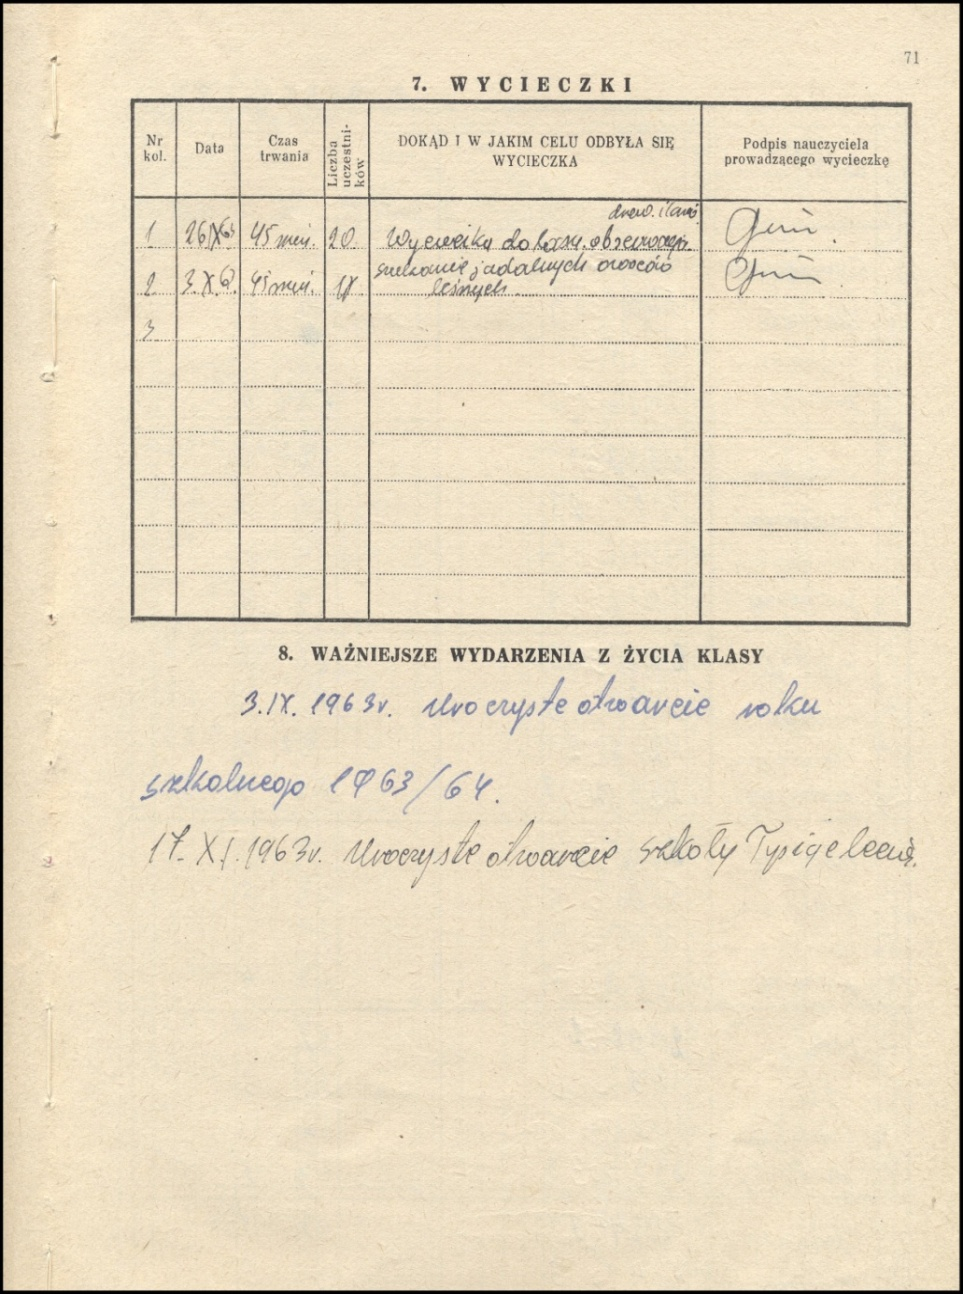 71
7. WYCIECZKI
Nr kol.
Data
Czas trwania
Liczba uczestni-ków
DOKĄD I W JAKIM CELU ODBYŁA SIĘ WYCIECZKA
Podpis nauczyciela prowadzącego wycieczkę
1 26 IX 63 45 min. 20 Wycieczka do lasu.
2 3.X 63. 45 min. szukanie jadalnych owoców
leśnych
3
8. WAŻNIEJSZE WYDARZENIA Z ŻYCIA KLASY
3.IX.1963r. Uroczyste otwarcie roku
szkolnego 1963/64.
17.XI.1963r. Uroczyste otwarcie szkoły Tysiąclecia.